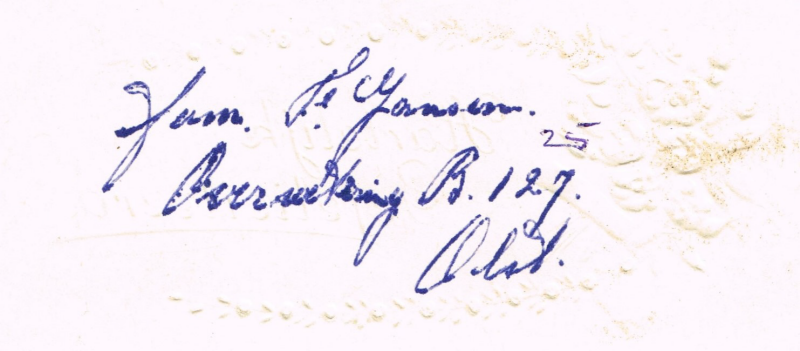 Fam. Fe Jansen.
25
Overwetering B. 127.
Olst.